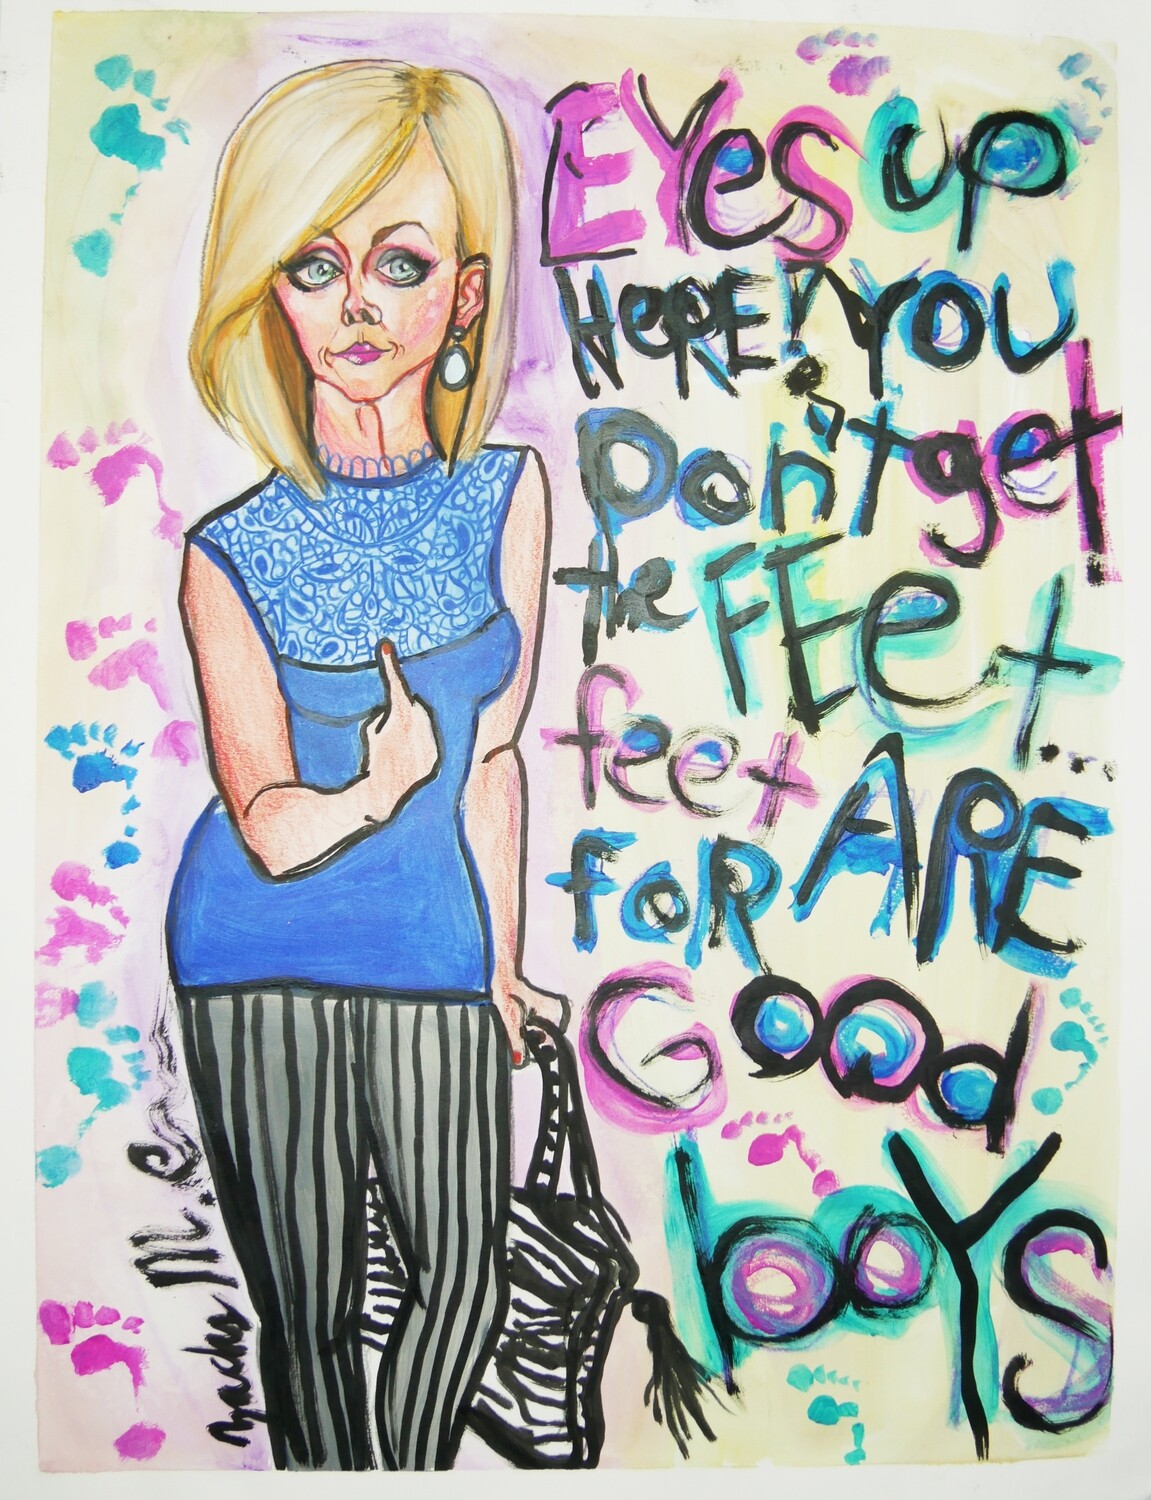 EYes up
HeRE! YOU
Don't get
the FEet...
feet ARE
FOR GOOD
boYS